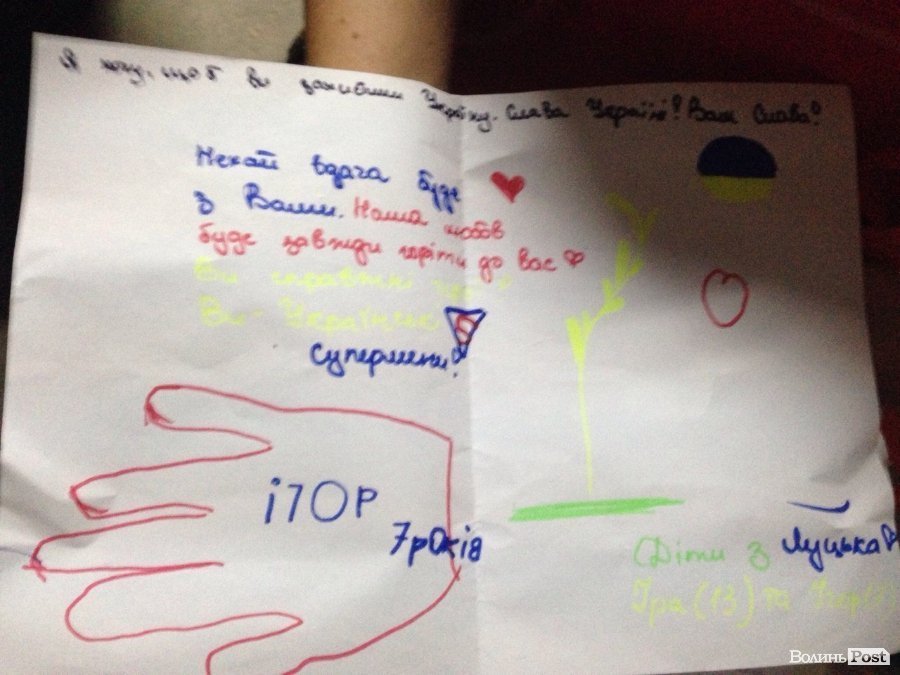 Я хочу, щоб ви захистили Україну. Слава Україні! Вам Слава!
Нехай вдача буде
з Вами. Наша любов
буде завжди горіти до вас
Ви справжні
Ви - Українські
Супермени!
S
іГОР
7рОків
(Діти з Луцька
Іра (13) та Ігор
Волинь Post